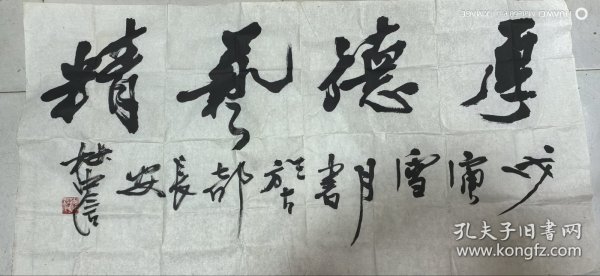 厚德藝精
戊寅雪月書於古都長安
杜中信
孔夫子旧书网
www.kongfz.com